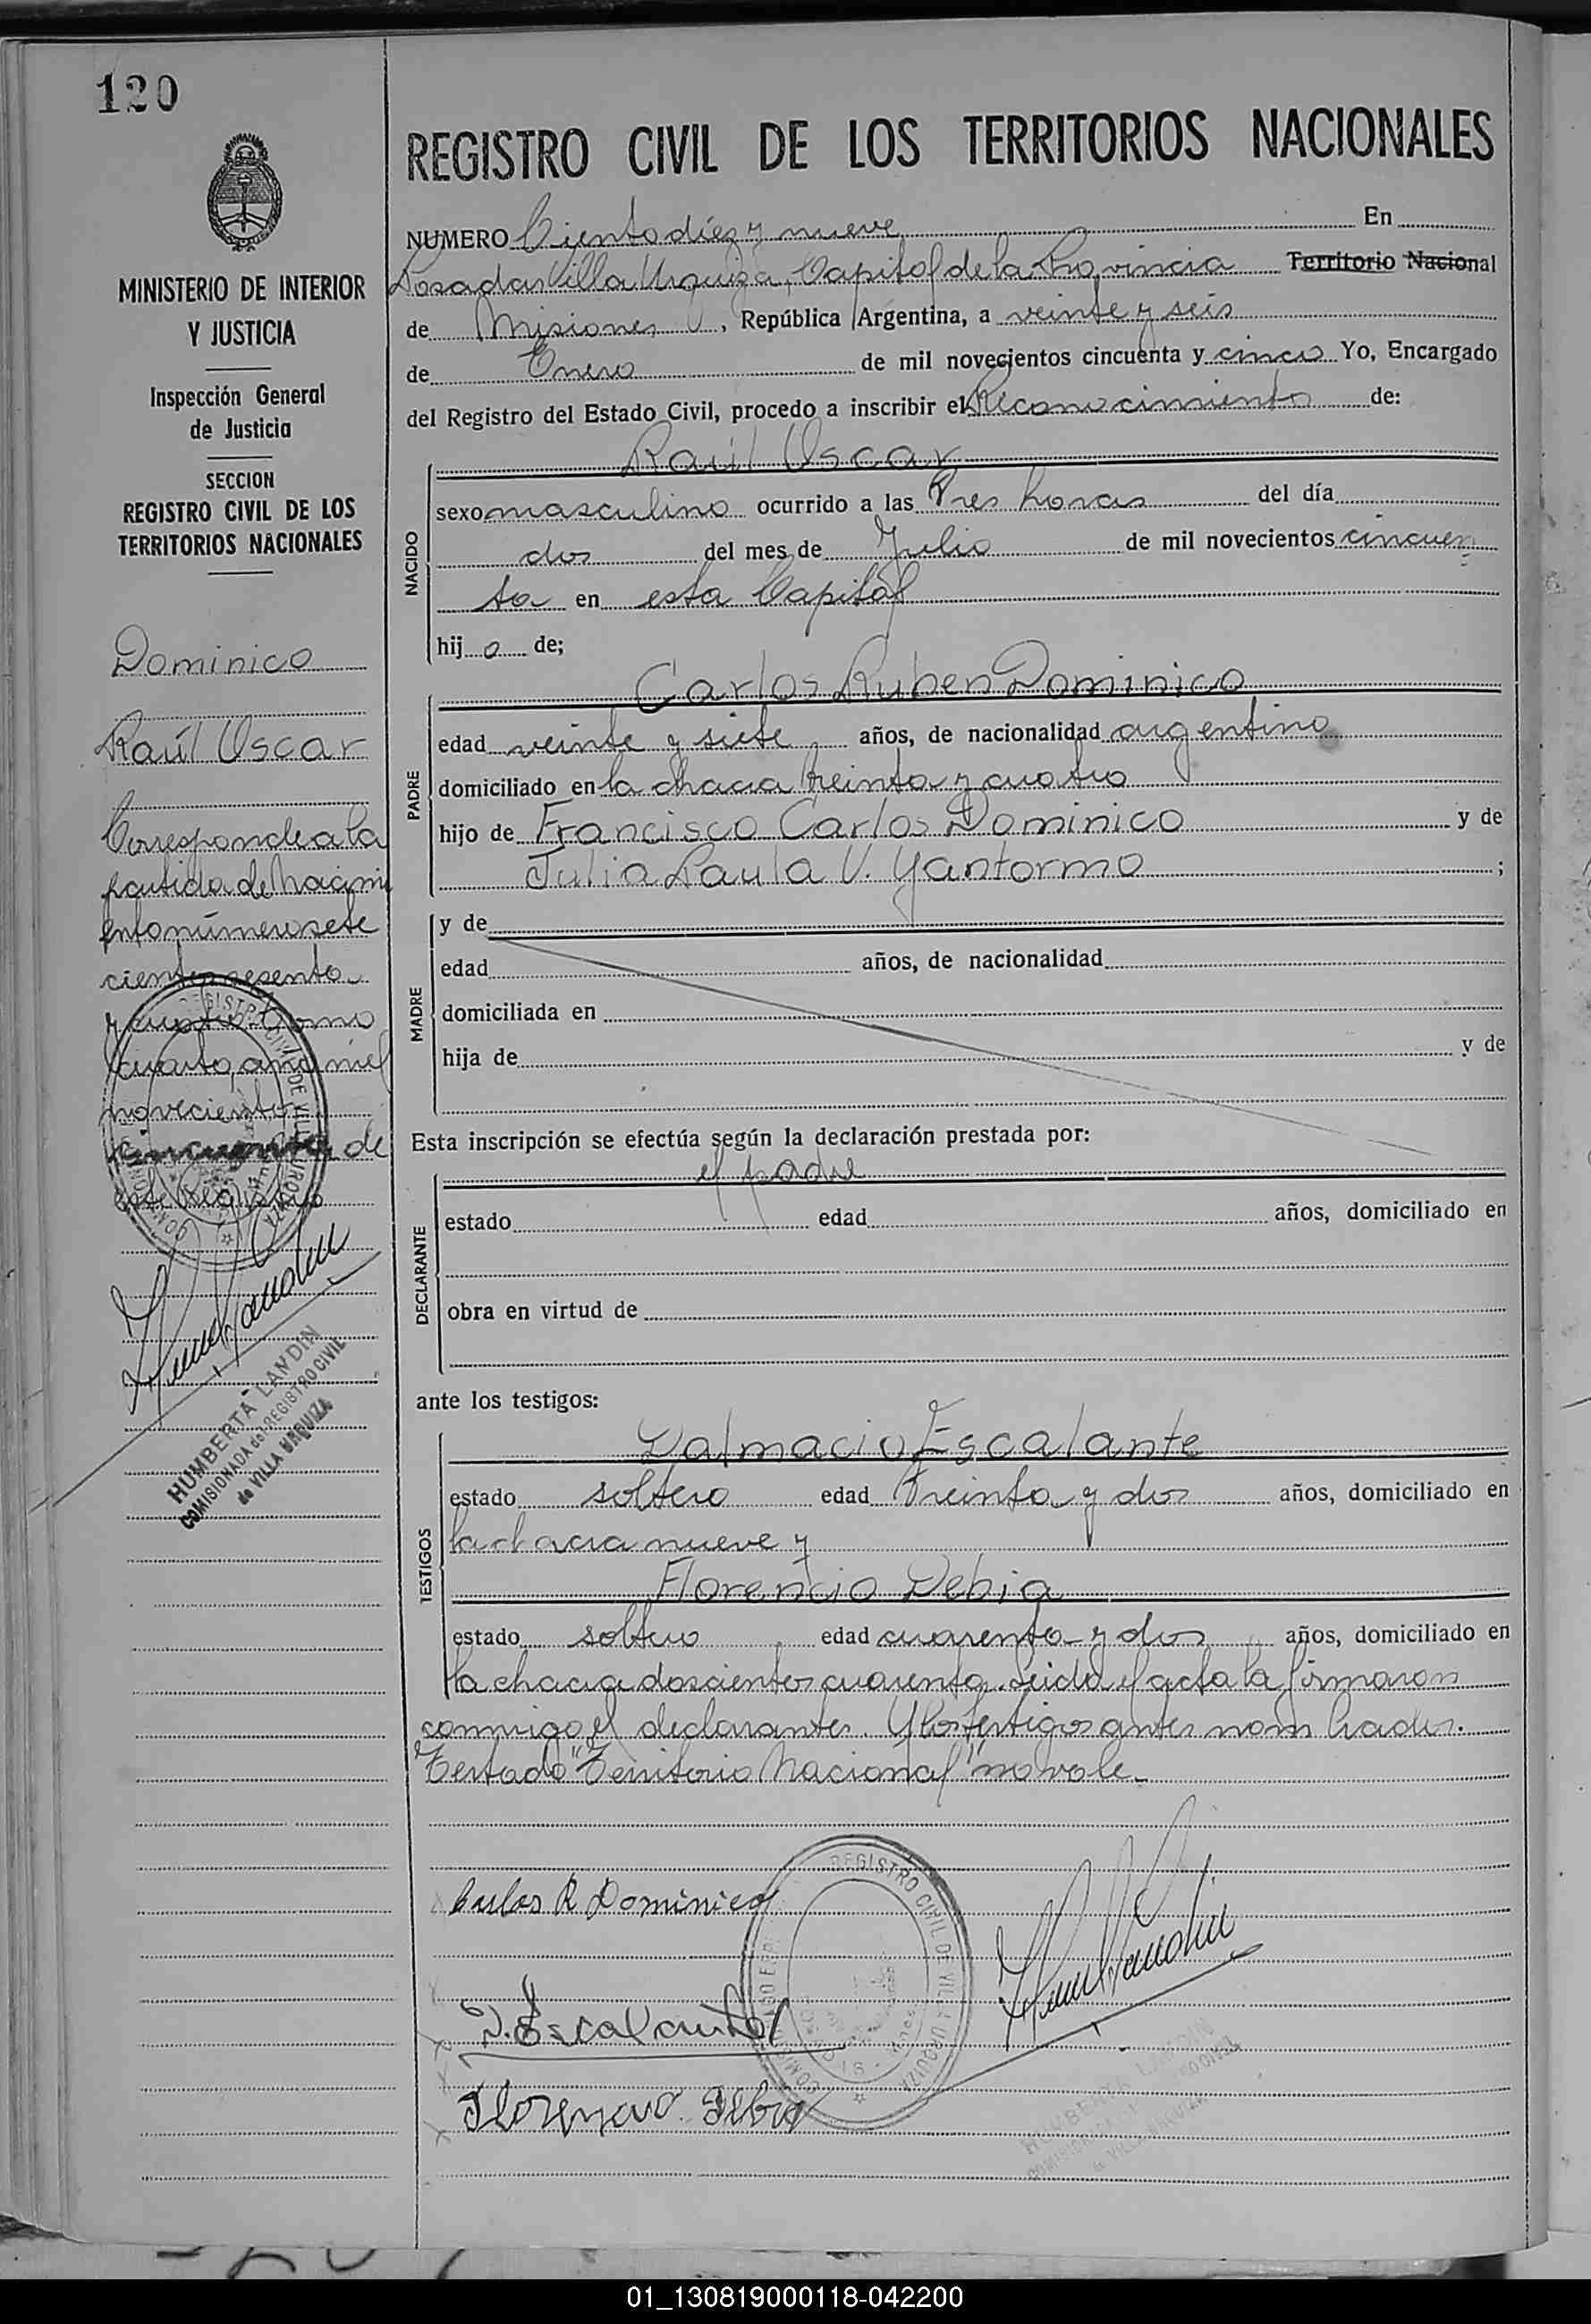 120
MINISTERIO DE INTERIOR
Y JUSTICIA
Inspección General
de Justicia
SECCION
REGISTRO CIVIL DE LOS
TERRITORIOS NACIONALES
Dominico
Raúl Oscar
Corresponde a la
partida de nacimi
ento número sete
cientos sesenta
y cuatro. Tomo
cuarto, año mil
novecientos
cincuenta de
este Registro
HUMBERTA LANDIN
COMISIONADA del REGISTRO CIVIL
de VILLA URQUIZA
REGISTRO CIVIL DE LOS TERRITORIOS NACIONALES
NUMERO Ciento diez y nueve En
Posadas Villa Urquiza, Capital de la Provincia Territorio Nacional
de Misiones, República Argentina, a veinte y seis
de Enero de mil novecientos cincuenta y cinco Yo, Encargado
del Registro del Estado Civil, procedo a inscribir el Reconocimiento de:
Raúl Oscar
NACIDO
sexo masculino ocurrido a las Tres horas del día
dos del mes de Julio de mil novecientos cincuen
ta en esta Capital
hijo de;
Carlos Ruben Dominico
PADRE
edad veinte y siete años, de nacionalidad argentino
domiciliado en la chacra treinta y cuatro
hijo de Francisco Carlos Dominico y de
Julia Paula V. Yantormo;
MADRE
y de
edad años, de nacionalidad
domiciliada en
hija de y de
Esta inscripción se efectúa según la declaración prestada por:
el padre
DECLARANTE
estado edad años, domiciliado en
obra en virtud de
ante los testigos:
Dalmacio Escalante
TESTIGOS
estado soltero edad Treinta y dos años, domiciliado en
la chacra nueve y
Florencio Debia
estado soltero edad cuarenta y dos años, domiciliado en
la chacra doscientos cuarenta. Leida el acta la firmaron
conmigo el declarantes. Y los testigos antes nombrados.
Testado "Territorio Nacional" no vale.
Carlos R Dominico
REGISTRO CIVIL DE VILLA URQUIZA
D. Escalante
Florencio Debia
HUMBERTA LANDIN
01_130819000118-042200